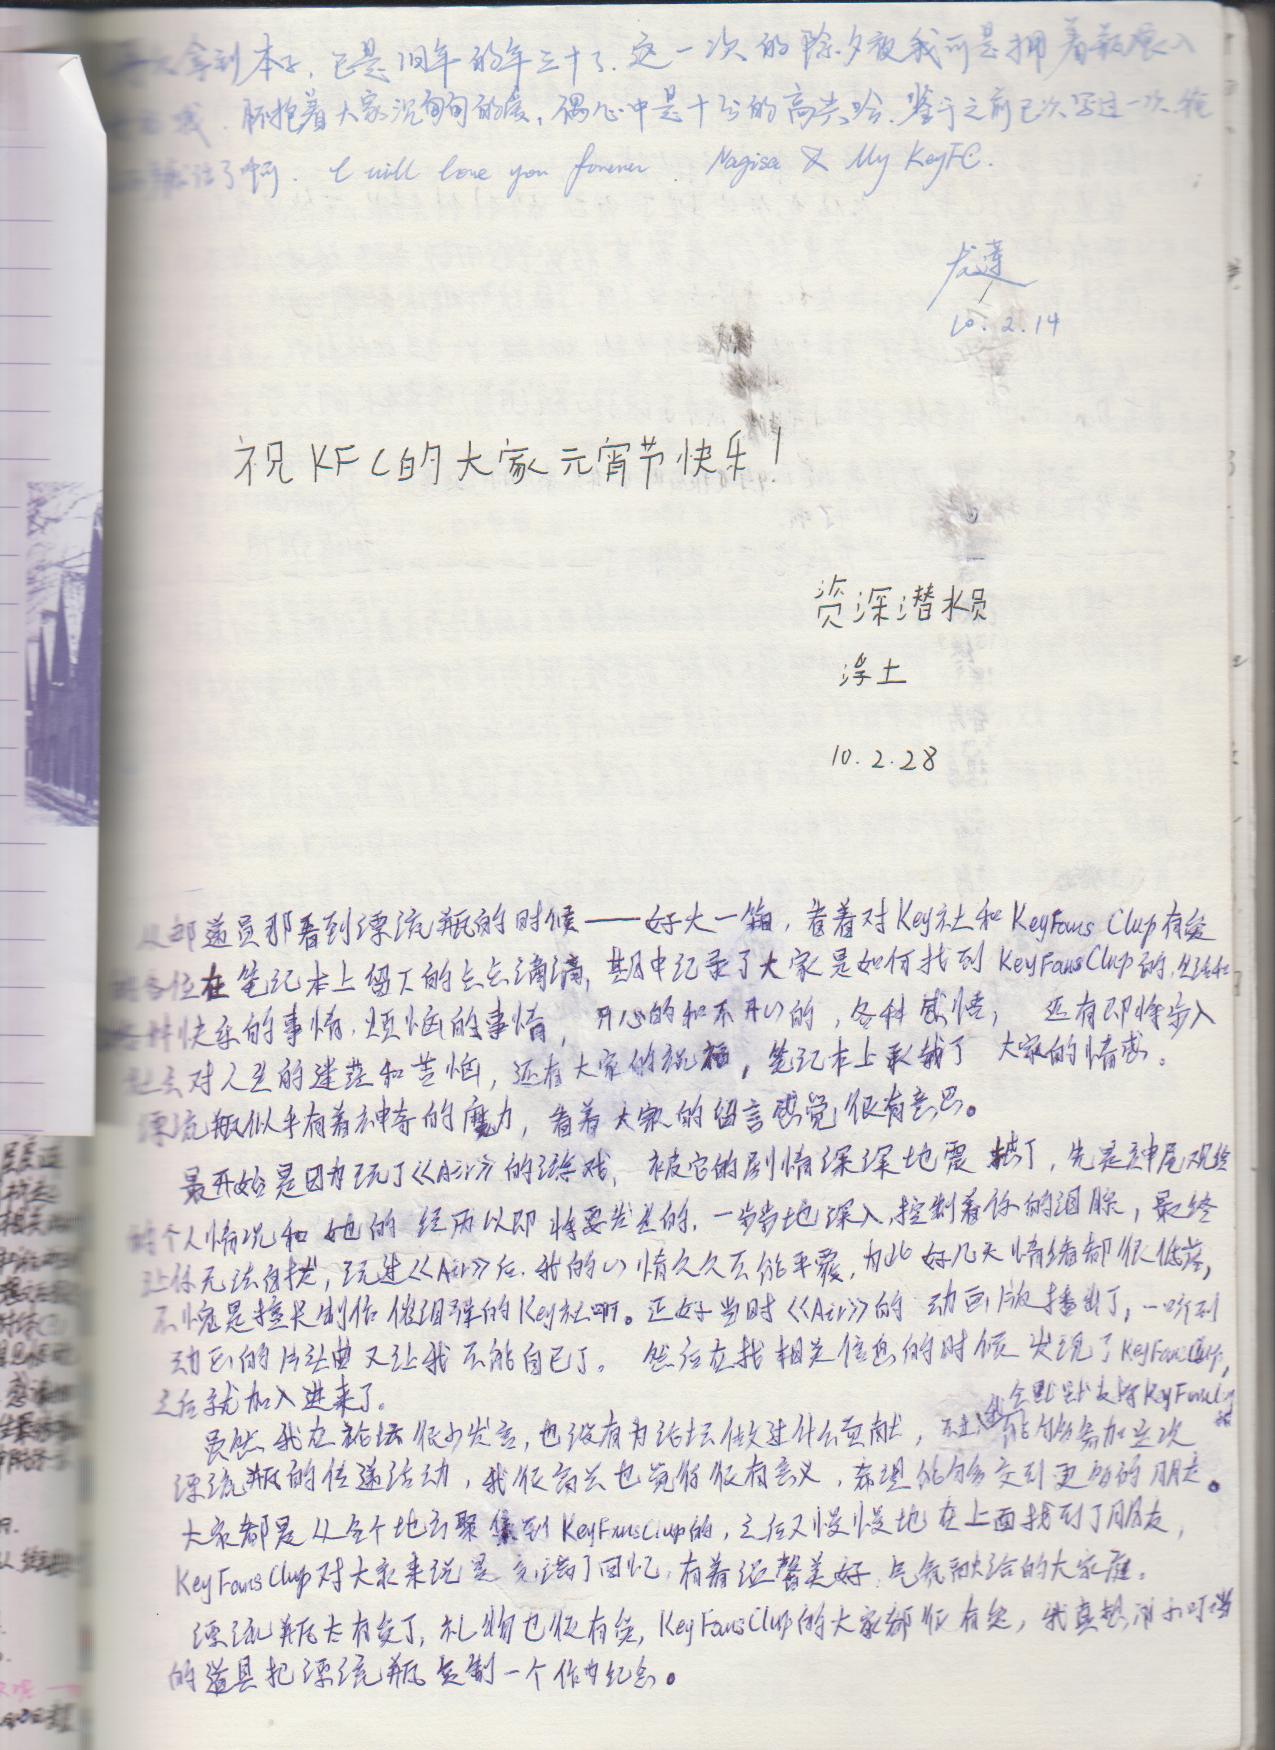 拿到本子，已是旧年的年三十了。这一次的除夕夜我可是拥着瓶睡入
怀抱着大家沉甸甸的爱，偶心中是十分的高兴哈。鉴于之前已次写过一次
了啊. I will love you forever. Nagisa & My KeyFC.
10.2.14
祝KFC的大家元宵节快乐！
资深潜水员
浮土
10.2.28
从邮递员那看到漂流瓶的时候——好大一箱，看着对Key社和KeyFans Clup有爱
的各位在笔记本上留下的点点滴滴，其中记录了大家是如何找到KeyFansClup的，生活和
各种快乐的事情，烦恼的事情，开心的和不开心的，各种感悟，还有即将步入
社会对人生的迷茫和苦恼，还有大家的祝福，笔记本上承载了大家的情感。
漂流瓶似乎有着神奇的魔力，看着大家的留言感觉很有意思。
最开始是因为玩了《Air》的游戏，被它的剧情深深地震撼了，先是神尾观铃
的个人情况和她的经历以即将要发生的，一步步地深入，控制着你的泪腺，最终
让你无法自拔，玩过《Air》后，我的心情久久不能平覆，为此好几天情绪都很低落，
不愧是擅长制作催泪弹的Key社啊。还好当时《Air》的动画版播出了，一听到
动画的片头曲又让我不能自已了。然后在找相关信息的时候发现了KeyFansClup，
之后就加入进来了。
虽然我在论坛很少发言，也没有为论坛做过什么贡献，不过我会默默支持KeyFansClup的 能够参加这次
漂流瓶的传递活动，我很高兴也觉得很有意义，希望能够交到更多的朋友。
大家都是从各个地方聚集到KeyFansClup的，之后又慢慢地在上面找到了朋友，
KeyFansClup对大家来说是充满了回忆，有着温馨美好，气氛融洽的大家庭。
漂流瓶太有爱了，礼物也很有爱，KeyFansClup的大家都很有爱，我真想用小叮当
的道具把漂流瓶复制一个作为纪念。